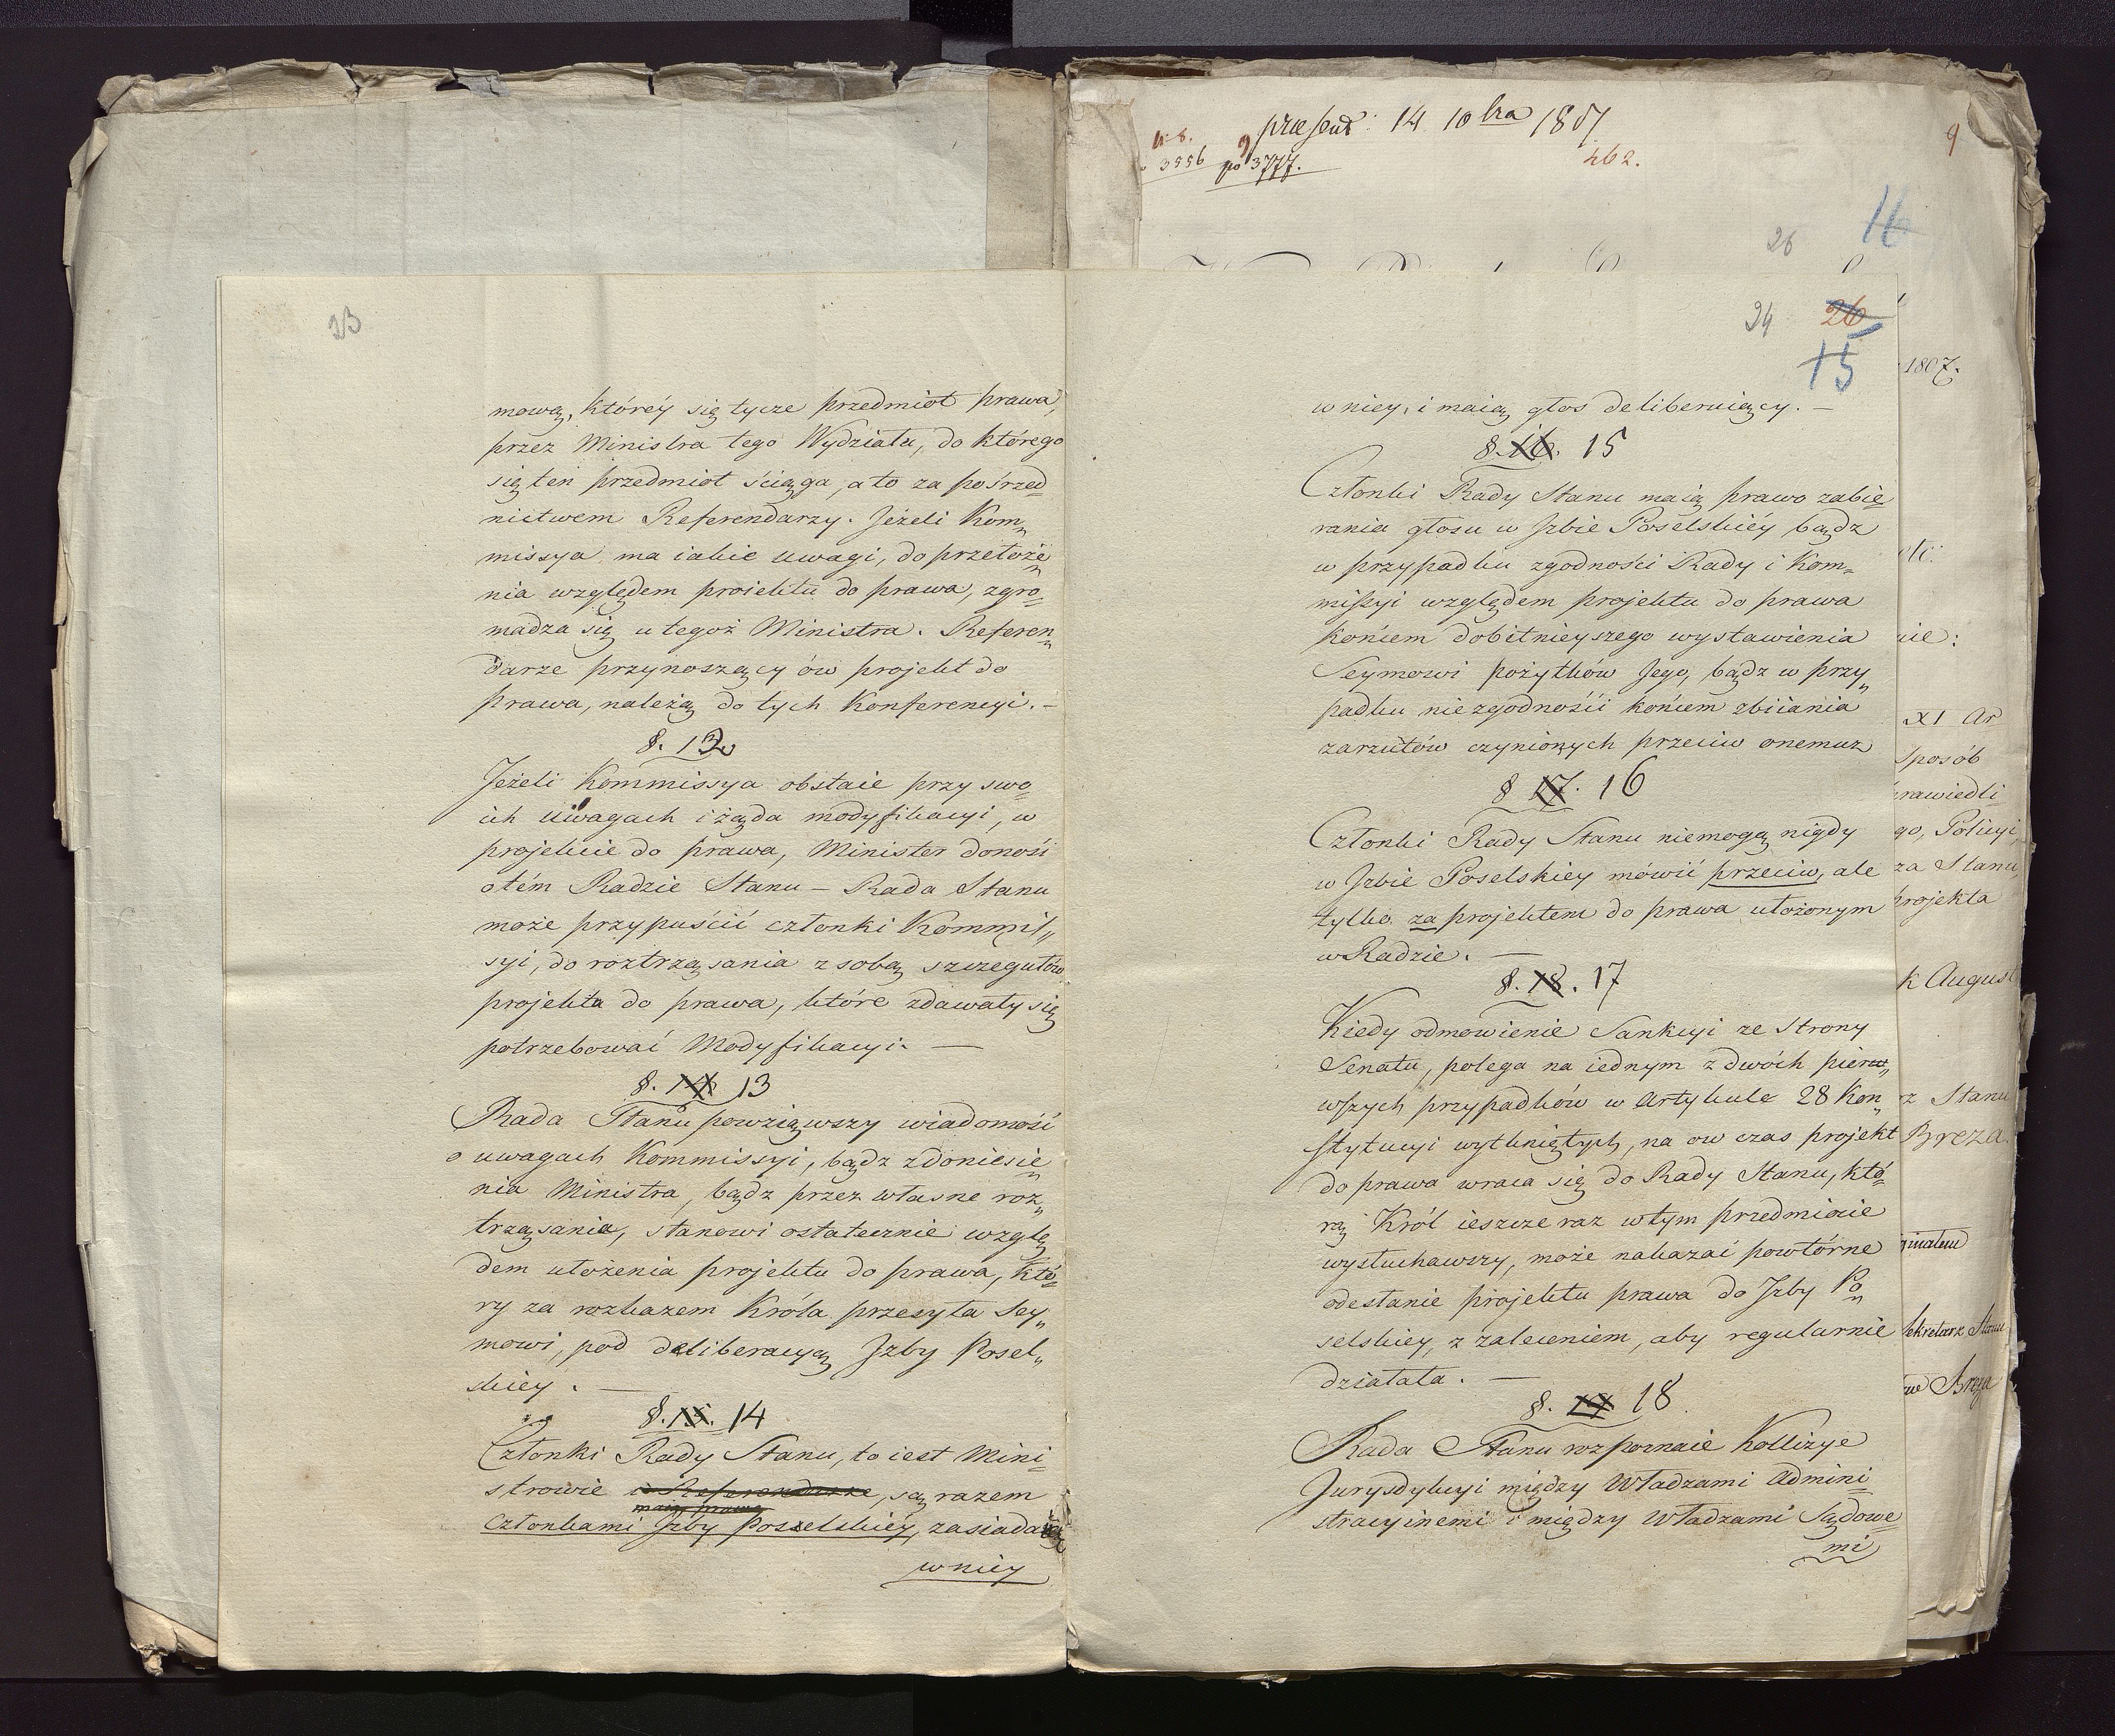 23
mową, któréy się tycze przedmiot prawa,
przez Ministra tego Wydziału, do którego
się ten przedmiot ściąga, a to za pośrzed=
nictwem Referendarzy. Jeżeli Kom„
missya ma iakie uwagi, do przełoże„
nia względem proiektu do prawa, zgro=
madza się u tegoż Ministra. Referen„
darze przynoszący ów projekt do
prawa, należą do tych Konferencyi. –
§. 12
Jeżeli Kommissya obstaie przy swo=
ich uwagach i żąda modyfikacyi, w
projekcie do prawa, Minister donośi
o tém Radzie Stanu – Rada Stanu
może przypuścić członki Kommis„
syi, do roztrząsania z sobą szczegułów
projekta do prawa, które zdawały się
potrzebować Modyfikacyi. —
§. 14 13
Rada Stanu powziąwszy wiadomość
o uwagach Kommissyi, bądz z doniesie„
nia Ministra, bądz przez własne roz„
trząsania, stanowi ostatecznie wzglę
dem ułożenia projektu do prawa, któ=
ry za rozkazem Króla przesyła Sey„
mowi, pod deliberacyą Jzby Posel„
skiey. —
§. 15. 14
Członki Rady Stanu, to iest Mini=
strowie i Referendarze, są razem
maią prawo
członkami Jzby Poselskiéy, zasiadaią
w niéy
præsent: 14 10bra 1807
3556 po 3777.
462.
9
26 16
24 26
15
w niey, i maią głos deliberuiący. —
§. 16. 15
Członki Rady Stanu maią prawo zabie=
rania głosu w Jzbie Poselskiéy bądz
w przypadku zgodności Rady i Kom=
mißyi względem projektu do prawa
końcem dobitnieyszego wystawienia
Seymowi pożytków Jego, bądz w przy„
padku niezgodnośći końcem zbiiania
zarzutów czynionych przeciw onemuz
§ 17. 16
Członki Rady Stanu niemogą nigdy
w Jzbie Poselskiey mówić przeciw, ale
tylko za projektem do prawa ułożonym
w Radzie. —
§. 18. 17
Kiedy odmowienie Sankcyi ze strony
Senatu, polega na iednym z dwóch pierw„
wszych przypadków w Artykule 28 Kon„
stytucyi wytkniętych, na ow czas projekt
do prawa wraca się do Rady Stanu, któ=
rą Król ieszcze raz w tym przedmiocie
wysłuchawszy, może nakazać powtórne
odesłanie projektu prawa do Jzby Po„
selskiey, z zaleceniem, aby regularnie
działała. —
§. 19 18
Rada Stanu rozpoznaie Kollizye
Jurysdykcyi między Władzami Admini=
stracyinemi i między Władzami Sądowe=
mi
1807.
nie:
XI Ar
Sposób
rawiedli=
go, Policyi,
za Stanu,
projekta
k August
rz Stanu
Breza.
ginałem
Sekretarz Stanu
Breza